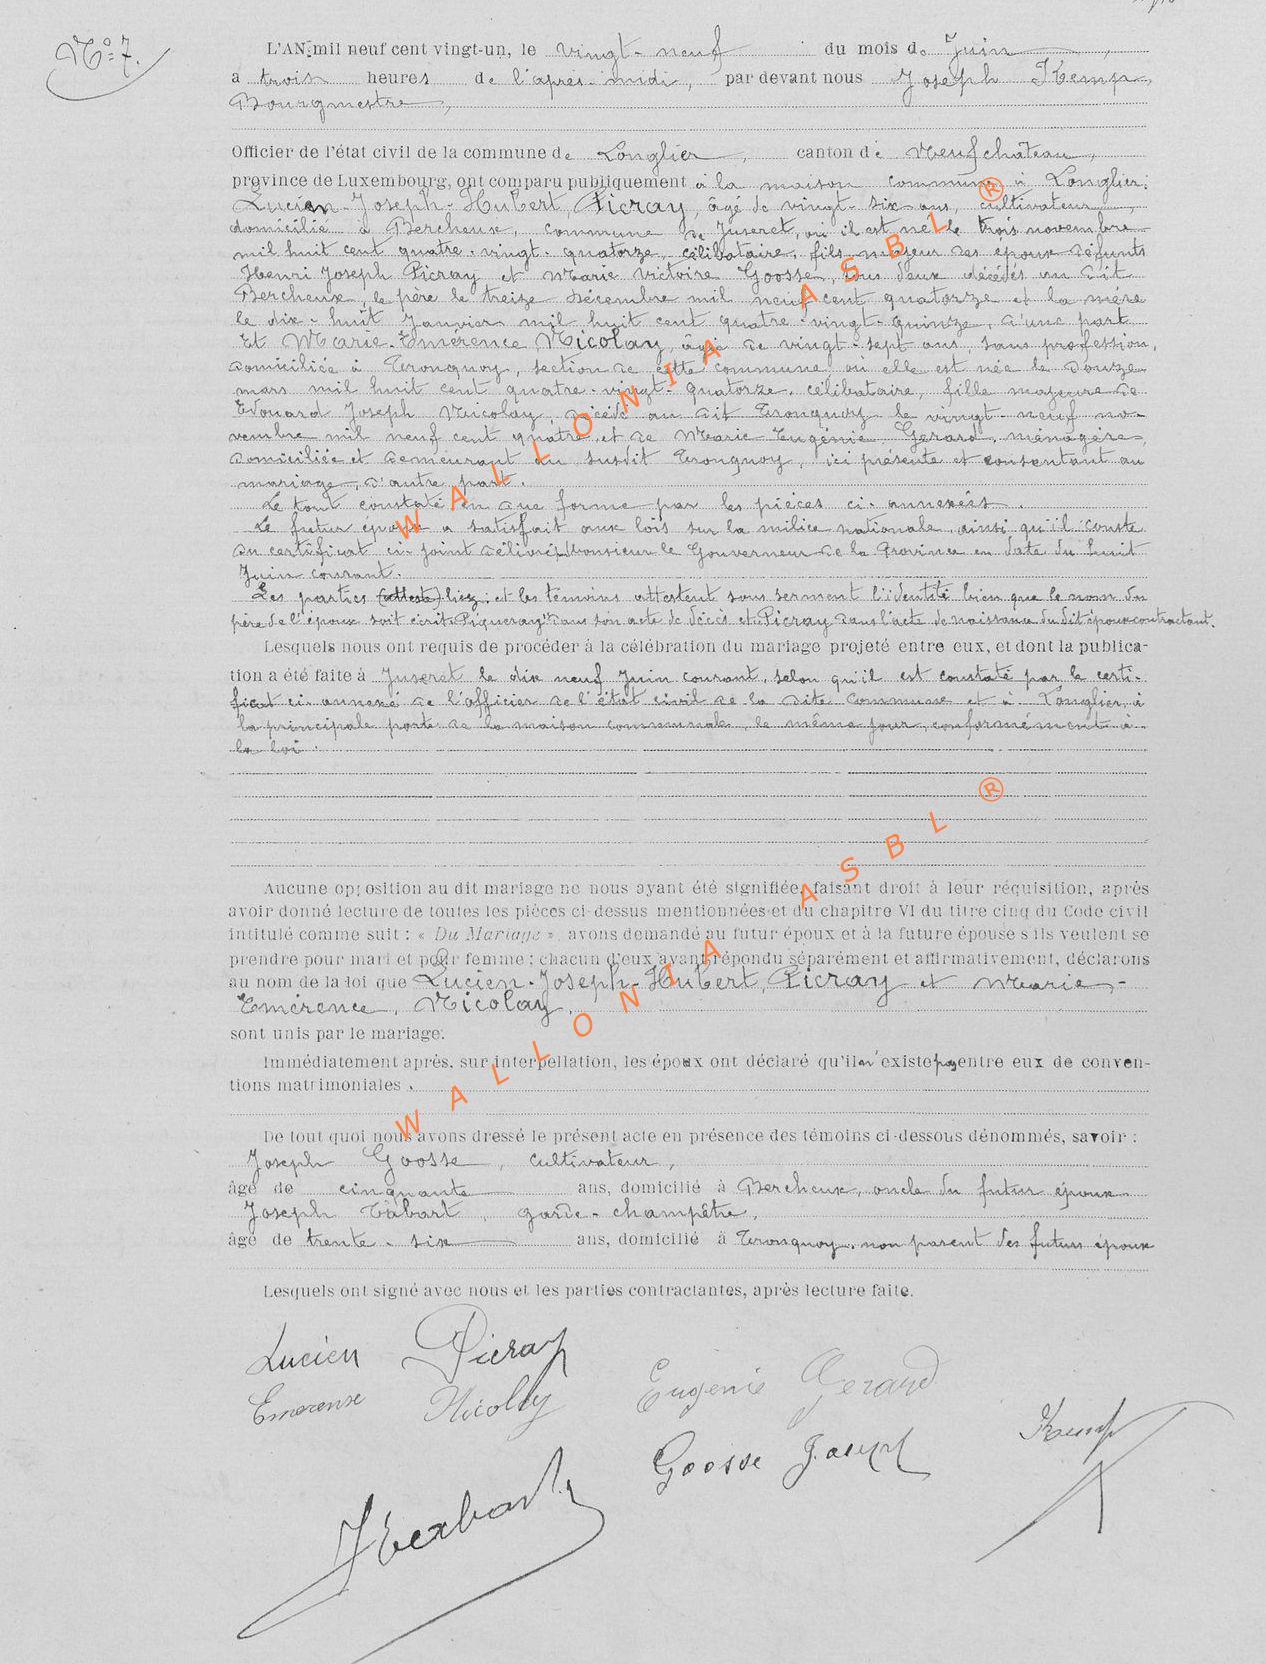 N° 7.
L'AN mil neuf cent vingt-un, le vingt-neuf du mois de Juin,
a trois heures de l'après-midi, par devant nous Joseph Kemp,
Bourgmestre,
Officier de l'état civil de la commune de Longlier, canton de Neufchâteau,
province de Luxembourg, ont comparu publiquement à la maison commune à Longlier:
Lucien-Joseph-Hubert, Picray, âgé de vingt-six ans, cultivateur,
domicilié à Bercheux, commune de Juseret, où il est né le trois novembre
mil huit cent quatre-vingt-quatorze, célibataire, fils majeur des époux défunts
Henri Joseph Picray et Marie Victoire Goosse, tous deux décédés au dit
Bercheux, le père le treize décembre mil neuf cent quatorze et la mère
le dix-huit Janvier mil huit cent quatre-vingt-quinze, d'une part
Et Marie-Emérence, Nicolay, âgée de vingt-sept ans, sans profession,
domiciliée à Tronquoy, section de cette commune où elle est née le douze
mars mil huit cent quatre-vingt-quatorze, célibataire, fille majeure de
Edouard Joseph Nicolay, décédé au dit Tronquoy le vingt-neuf no-
vembre mil neuf cent quatre, et de Marie-Eugénie Gerard, ménagère,
domiciliée et demeurant au susdit Tronquoy, ici présente et consentant au
mariage, d'autre part.
Le tout constaté en due forme par les pièces ci-annexées.
Le futur époux a satisfait aux lois sur la milice nationale, ainsi qu'il conste
du certificat ci-joint délivré Monsieur le Gouverneur de la Province en date du huit
Juin courant.
Les parties et les témoins attestent sous serment l'identité bien que le nom du
père de l'époux soit écrit "Piqueray" dans son acte de décès et Picray dans l'acte de naissance du dit époux contractant.
Lesquels nous ont requis de procéder à la célébration du mariage projeté entre eux, et dont la publica-
tion a été faite à Juseret le dix neuf Juin courant, selon qu'il est constaté par le certi-
ficat ci-annexé de l'officier de l'état civil de la dite commune et à Longlier, à
la principale porte de la maison communale, le même jour, conformément à
la loi.
Aucune opposition au dit mariage ne nous ayant été signifiée, faisant droit à leur réquisition, après
avoir donné lecture de toutes les pièces ci-dessus mentionnées et du chapitre VI du titre cinq du Code civil
intitulé comme suit : « Du Mariage », avons demandé au futur époux et à la future épouse s'ils veulent se
prendre pour mari et pour femme ; chacun d'eux ayant répondu séparément et affirmativement, déclarons
au nom de la loi que Lucien-Joseph-Hubert, Picray et Marie-
Emérence, Nicolay,
sont unis par le mariage.
Immédiatement après, sur interpellation, les époux ont déclaré qu'il n'existe pas entre eux de conven-
tions matrimoniales.
De tout quoi nous avons dressé le présent acte en présence des témoins ci-dessous dénommés, savoir :
Joseph Goosse, cultivateur,
âgé de cinquante ans, domicilié à Bercheux, oncle du futur époux
Joseph garde-champêtre,
âgé de trente-six ans, domicilié à Tronquoy, non parent des futurs époux
Lesquels ont signé avec nous et les parties contractantes, après lecture faite.
Lucien Picray
Emerense Nicolay
Eugénie Gerard
Goosse Joseph
Kemp
WALLONIA ASBL ®
WALLONIA ASBL ®